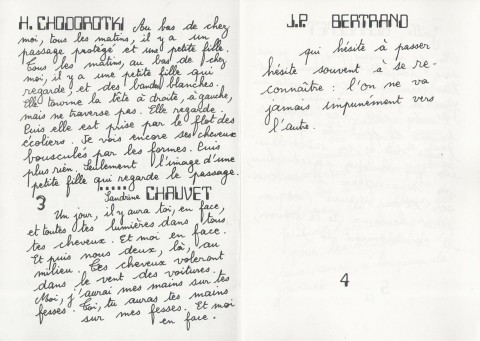 H. CHODOROTKI Au bas de chez
moi, tous les matins, il y a un
passage protégé et une petite fille.
Tous les matins, au bas de chez
moi, il y a une petite fille qui
regarde et des bandes blanches.
Elle tourne la tête à droite, à gauche,
mais ne traverse pas. Elle regarde.
Puis elle est prise par le flot des
écoliers. Je vois encore ses cheveux
bousculés par les formes. Puis
plus rien. Seulement l'image d'une
petite fille qui regarde le passage.
.....
3 Sandrine CHAUVET
Un jour, il y aura toi, en face,
et toutes les lumières dans tous
tes cheveux. Et moi en face.
Et puis nous deux, là, au
milieu. Tes cheveux voleront
dans le vent des voitures.
Moi, j'aurai mes mains sur tes
fesses. Toi, tu auras tes mains
sur mes fesses. Et moi
en face.
J.P. BERTRAND
qui hésite à passer
hésite souvent à se re-
connaître : l'on ne va
jamais impunément vers
l'autre.
4